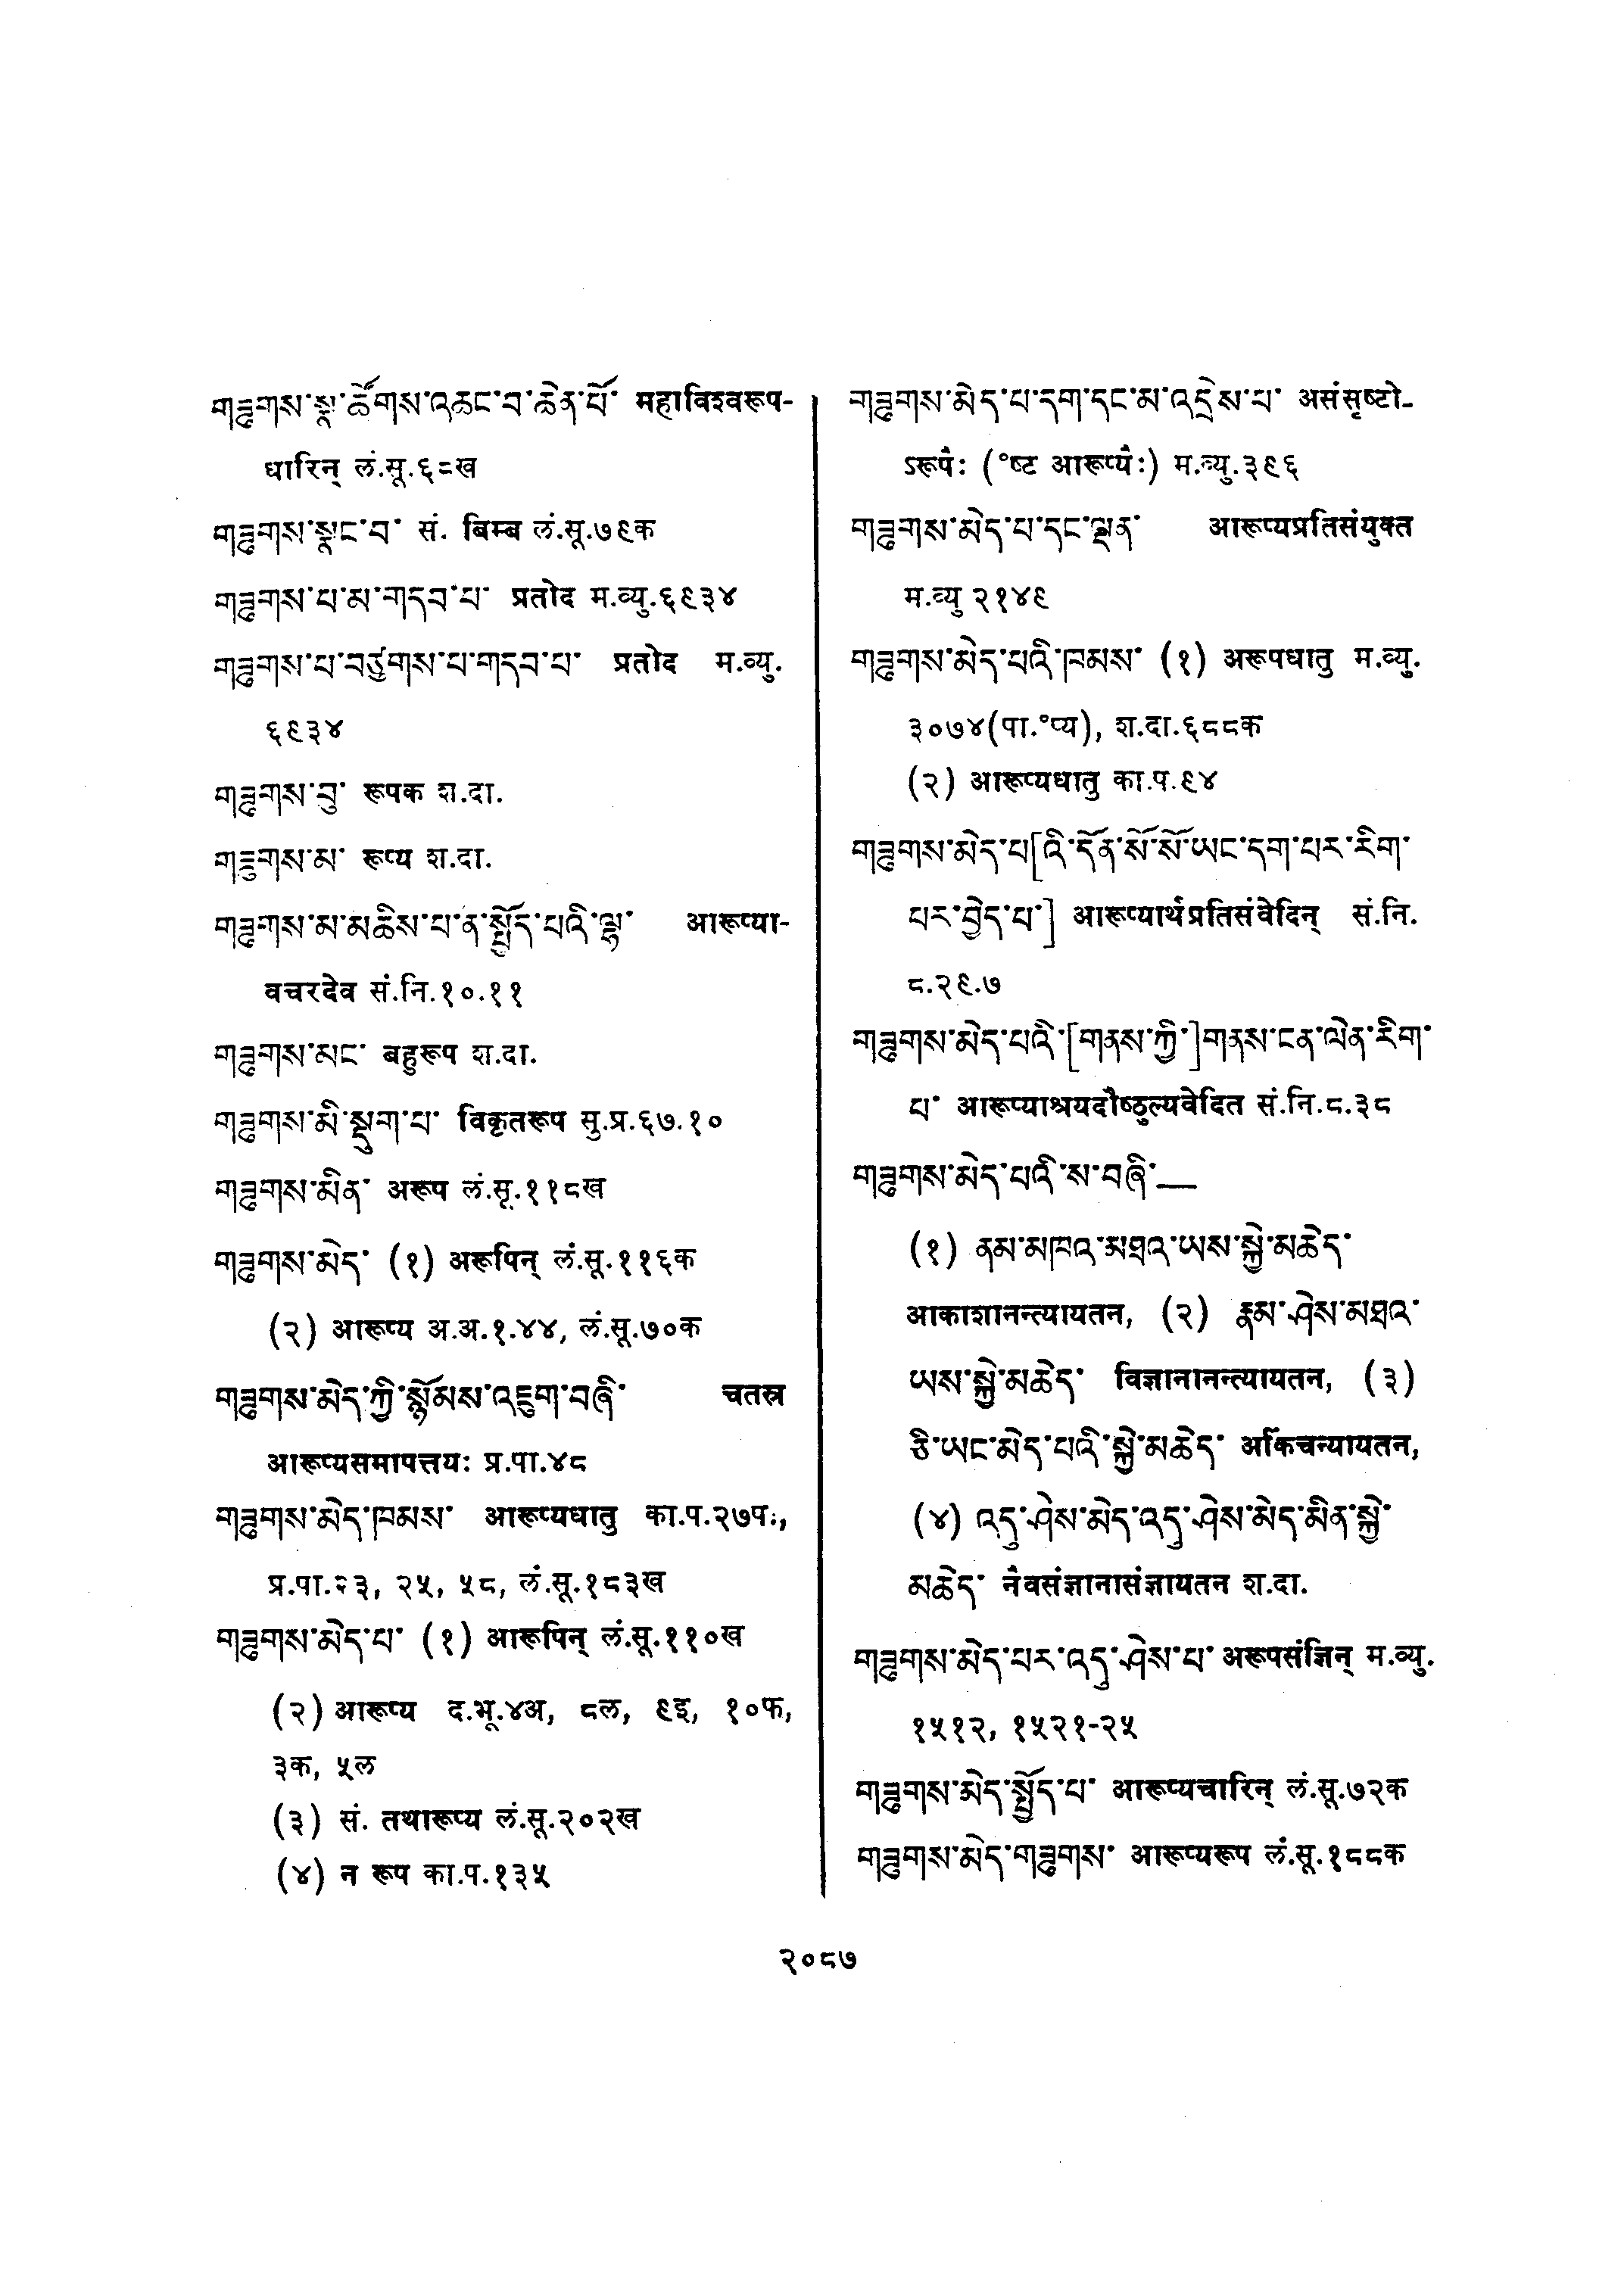 གཟུགས་སྣ་ཚོགས་འཆང་བ་ཆེན་པོ་ महाविश्वरूप-
धारिन् लं.सू.६८ख
གཟུགས་སྣང་བ་ सं. बिम्ब लं.सू.७९क
གཟུགས་པ་མ་གདབ་པ་ प्रतोद म.व्यु.६९३४
གཟུགས་པ་བཙུགས་པ་གདབ་པ་ प्रतोद म.व्यु.
६९३४
གཟུགས་བུ་ रूपक श.दा.
གཟུགས་མ་ रूप्य श.दा.
གཟུགས་མ་མཆིས་པ་ན་སྤྱོད་པའི་ལྷ་ आरूप्या-
वचरदेव सं.नि.१०.११
གཟུགས་མང་ बहुरूप श.दा.
གཟུགས་མི་སྡུག་པ་ विकृतरूप सु.प्र.६७.१०
གཟུགས་མིན་ अरूप लं.सू.११८ख
གཟུགས་མེད་ (१) अरूपिन् लं.सू.११६क
(२) आरूप्य अ.अ.१.४४, लं.सू.७०क
གཟུགས་མེད་ཀྱི་སྙོམས་འཇུག་བཞི་ चतस्र
आरूप्यसमापत्तयः प्र.पा.४८
གཟུགས་མེད་ཁམས་ आरूप्यधातु का.प.२७पः,
प्र.पा.२३, २५, ५८, लं.सू.१८३ख
གཟུགས་མེད་པ་ (१) आरूपिन् लं.सू.११०ख
(२) आरूप्य द.भू.४अ, ८ल, ९इ, १०फ,
३क, ५ल
(३) सं. तथारूप्य लं.सू.२०२ख
(४) न रूप का.प.१३५
གཟུགས་མེད་པ་དག་དང་མ་འདྲེས་པ་ असंसृष्टो-
ऽरूपैः (°ष्ट आरूप्यैः) म.व्यु.३९६
གཟུགས་མེད་པ་དང་ལྡན་ आरूप्यप्रतिसंयुक्त
म.व्यु २१४९
གཟུགས་མེད་པའི་ཁམས་ (१) अरूपधातु म.व्यु.
३०७४(पा.°प्य), श.दा.६८८क
(२) आरूप्यधातु का.प.९४
གཟུགས་མེད་པ[འི་དོན་སོ་སོ་ཡང་དག་པར་རིག་
པར་བྱེད་པ་] आरूप्यार्थप्रतिसंवेदिन् सं.नि.
८.२९.७
གཟུགས་མེད་པའི་[གནས་ཀྱི་]གནས་ངན་ལེན་རིག་
པ་ आरूप्याश्रयदौष्ठुल्यवेदित सं.नि.८.३८
གཟུགས་མེད་པའི་ས་བཞི་—
(१) ནམ་མཁའ་མཐའ་ཡས་སྐྱེ་མཆེད་
आकाशानन्त्यायतन, (२) རྣམ་ཤེས་མཐའ་
ཡས་སྐྱེ་མཆེད་ विज्ञानानन्त्यायतन, (३)
ཅི་ཡང་མེད་པའི་སྐྱེ་མཆེད་ अकिंचन्यायतन,
(४) འདུ་ཤེས་མེད་འདུ་ཤེས་མེད་མིན་སྐྱེ་
མཆེད་ नैवसंज्ञानासंज्ञायतन श.दा.
གཟུགས་མེད་པར་འདུ་ཤེས་པ་ अरूपसंज्ञिन् म.व्यु.
१५१२, १५२१-२५
གཟུགས་མེད་སྤྱོད་པ་ आरूप्यचारिन् लं.सू.७२क
གཟུགས་མེད་གཟུགས་ आरूप्यरूप लं.सू.१८८क
२०८७